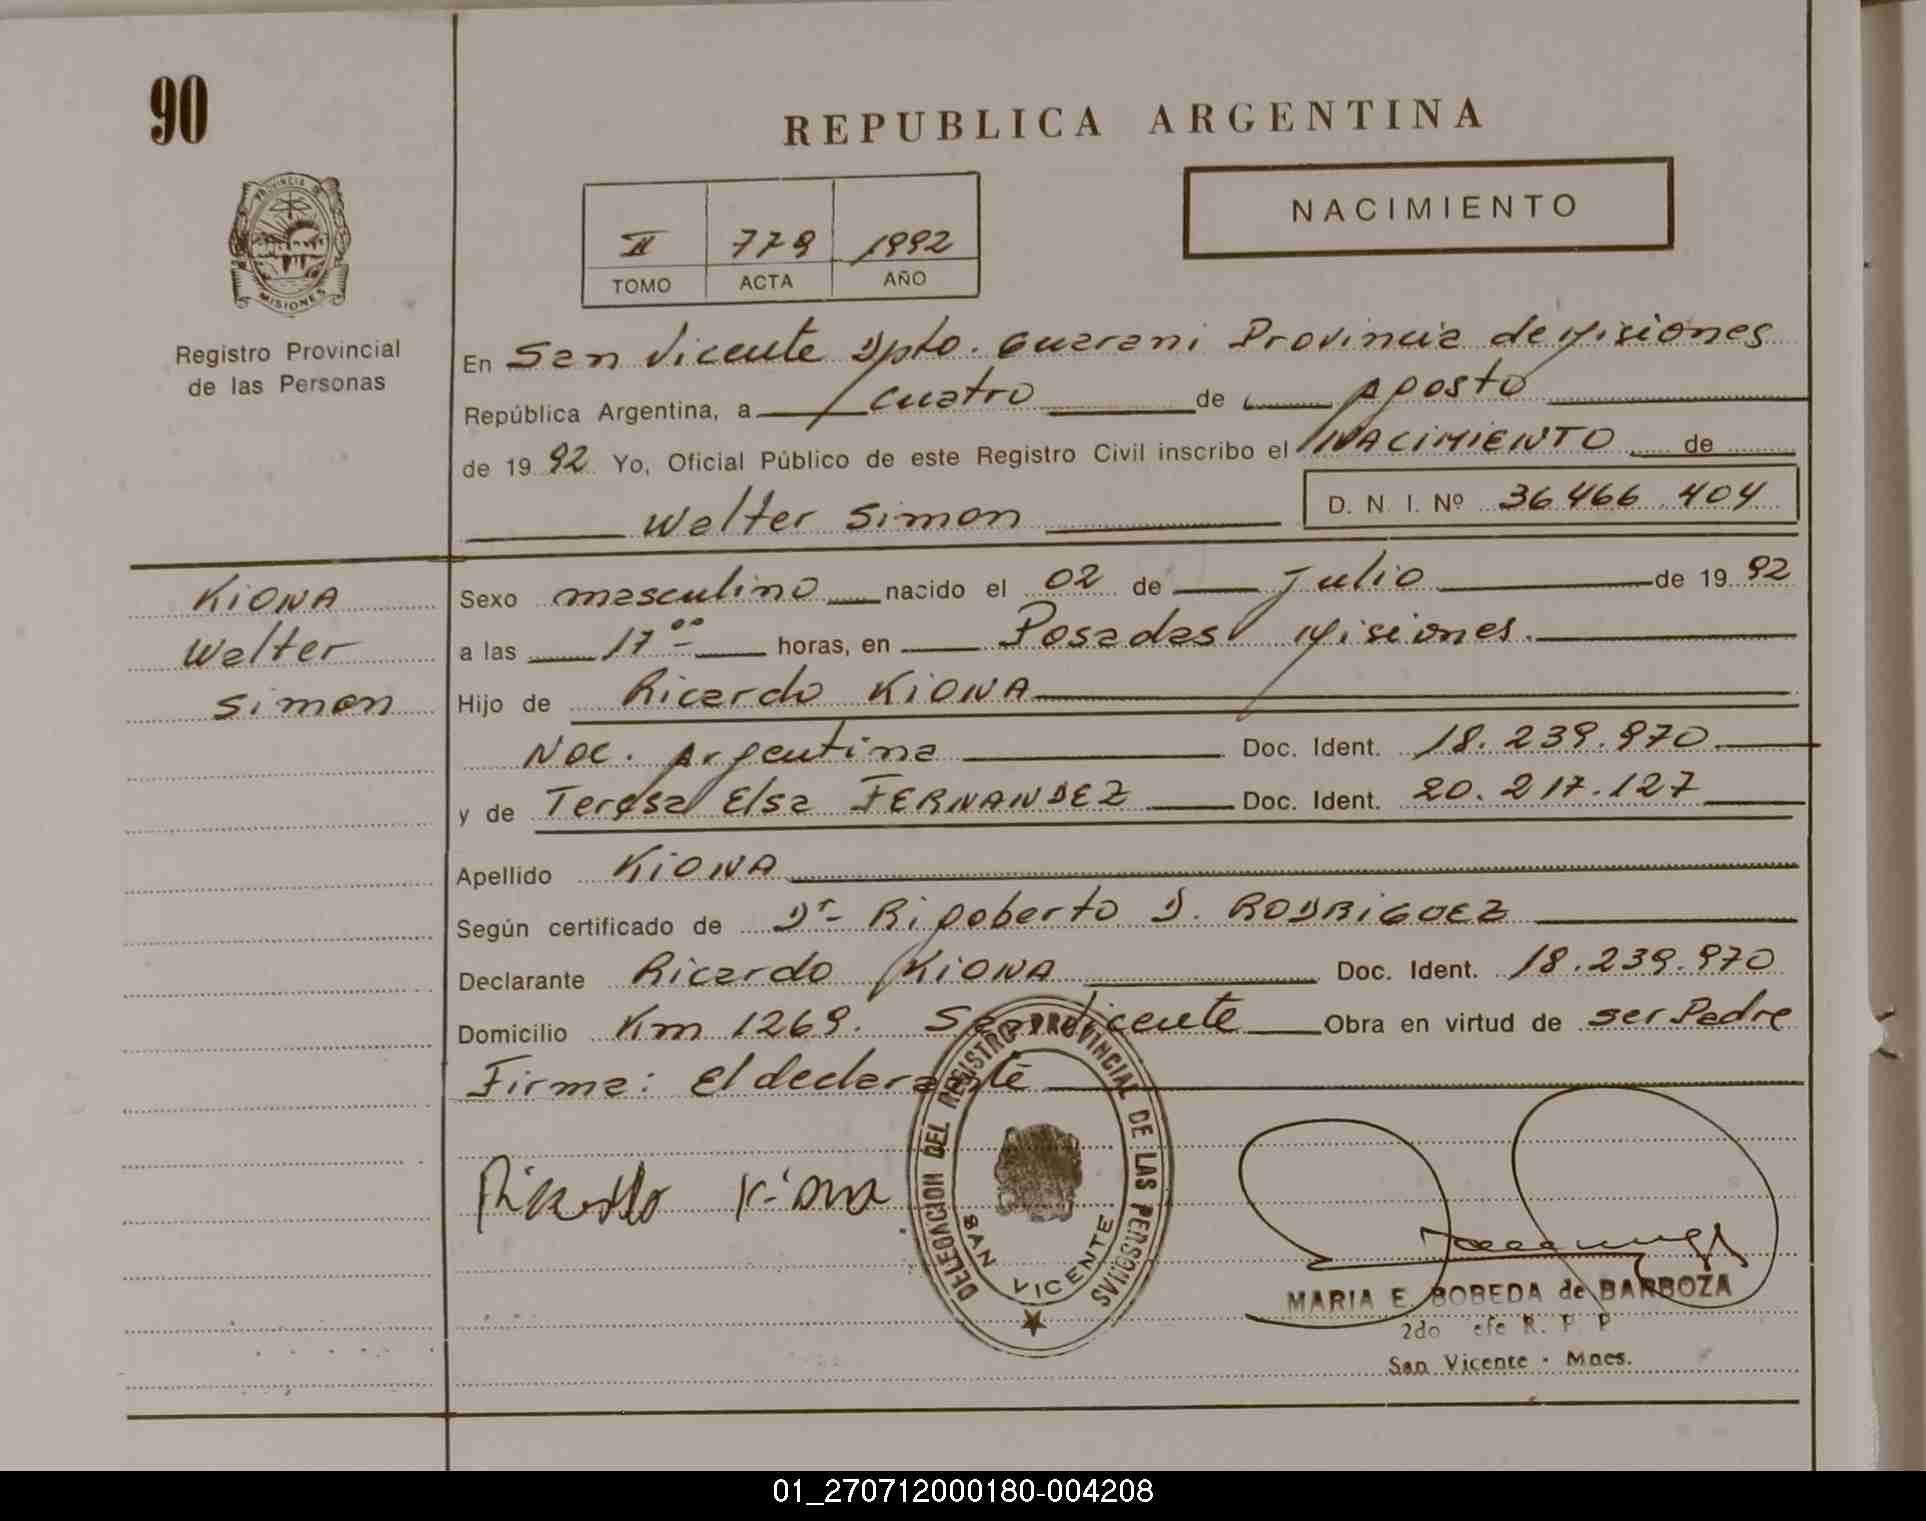 90
REPUBLICA ARGENTINA
NACIMIENTO
II 779 1992
TOMO ACTA AÑO
PROVINCIA DE MISIONES
Registro Provincial
de las Personas
En San Vicente Dpto. Guarani Provincia de Misiones
República Argentina, a cuatro de Agosto
de 19 92 Yo, Oficial Público de este Registro Civil inscribo el NACIMIENTO de
Walter Simon D. N. I. Nº 36466.404
KIONA
Walter
Simon
Sexo masculino nacido el 02 de Julio de 19 92
a las 17°° horas, en Posadas Misiones.
Hijo de Ricardo KIONA
Nac. Argentina Doc. Ident. 18.239.970
y de Teresa Elsa FERNANDEZ Doc. Ident. 20.217.127
Apellido KIONA
Según certificado de Dr- Rigoberto D. RODRIGUEZ
Declarante Ricardo KIONA Doc. Ident. 18.239.970
Domicilio Km 1269. San Vicente Obra en virtud de ser Padre
Firma: El declarante
DELEGACION DEL REGISTRO PROVINCIAL DE LAS PERSONAS
SAN VICENTE
Ricardo Kiona
MARIA E. BOBEDA de BARBOZA
2do efe R. P. P
San Vicente - Mnes.
01_270712000180-004208